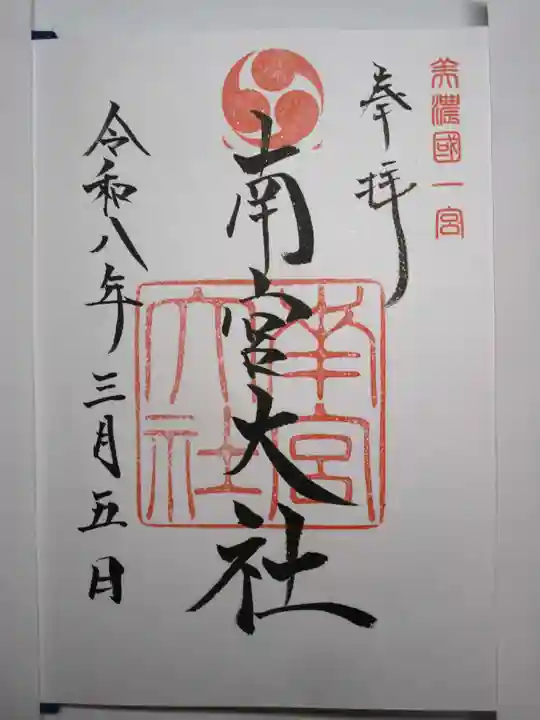 美濃國一宮
奉拝
南宮大社
南宮大社
令和八年三月五日